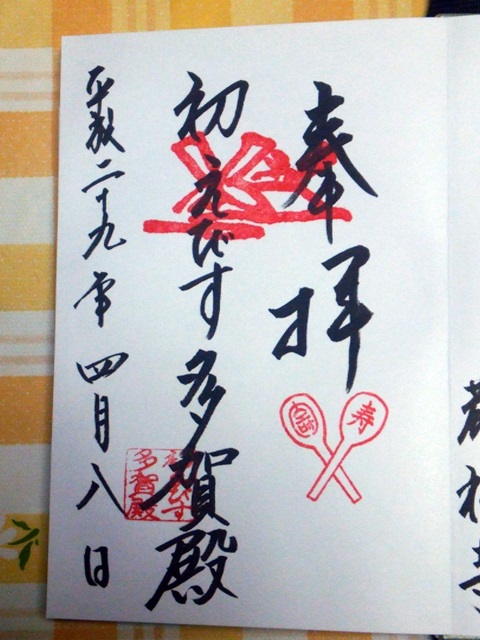 奉拝
初えびす多賀殿
平成二十九年四月八日
寿
多賀殿